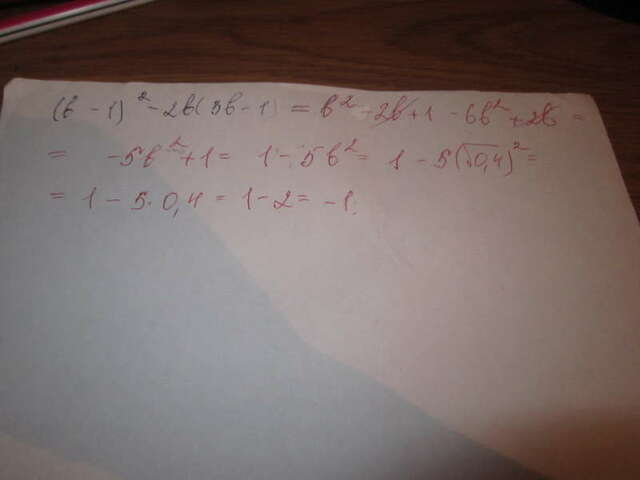 (b - 1)² - 2b(3b - 1) = b² - 2b + 1 - 6b² + 2b =
= -5b² + 1 = 1 - 5b² = 1 - 5(√0,4)² =
= 1 - 5·0,4 = 1 - 2 = -1.